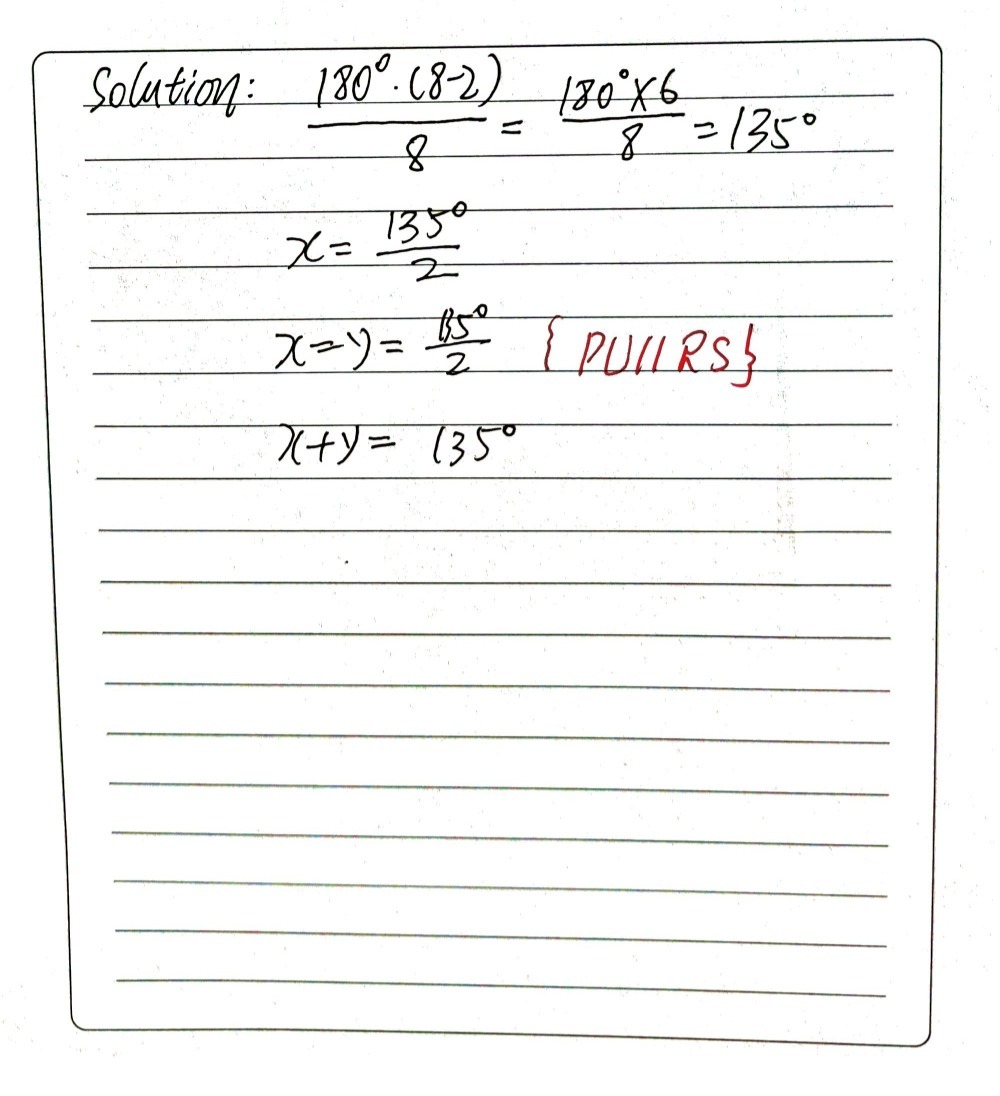 Solution: 180°·(8-2)/8 = 180°×6/8 = 135°
x = 135°/2
x=y = 135°/2 {PU//RS}
x+y = 135°